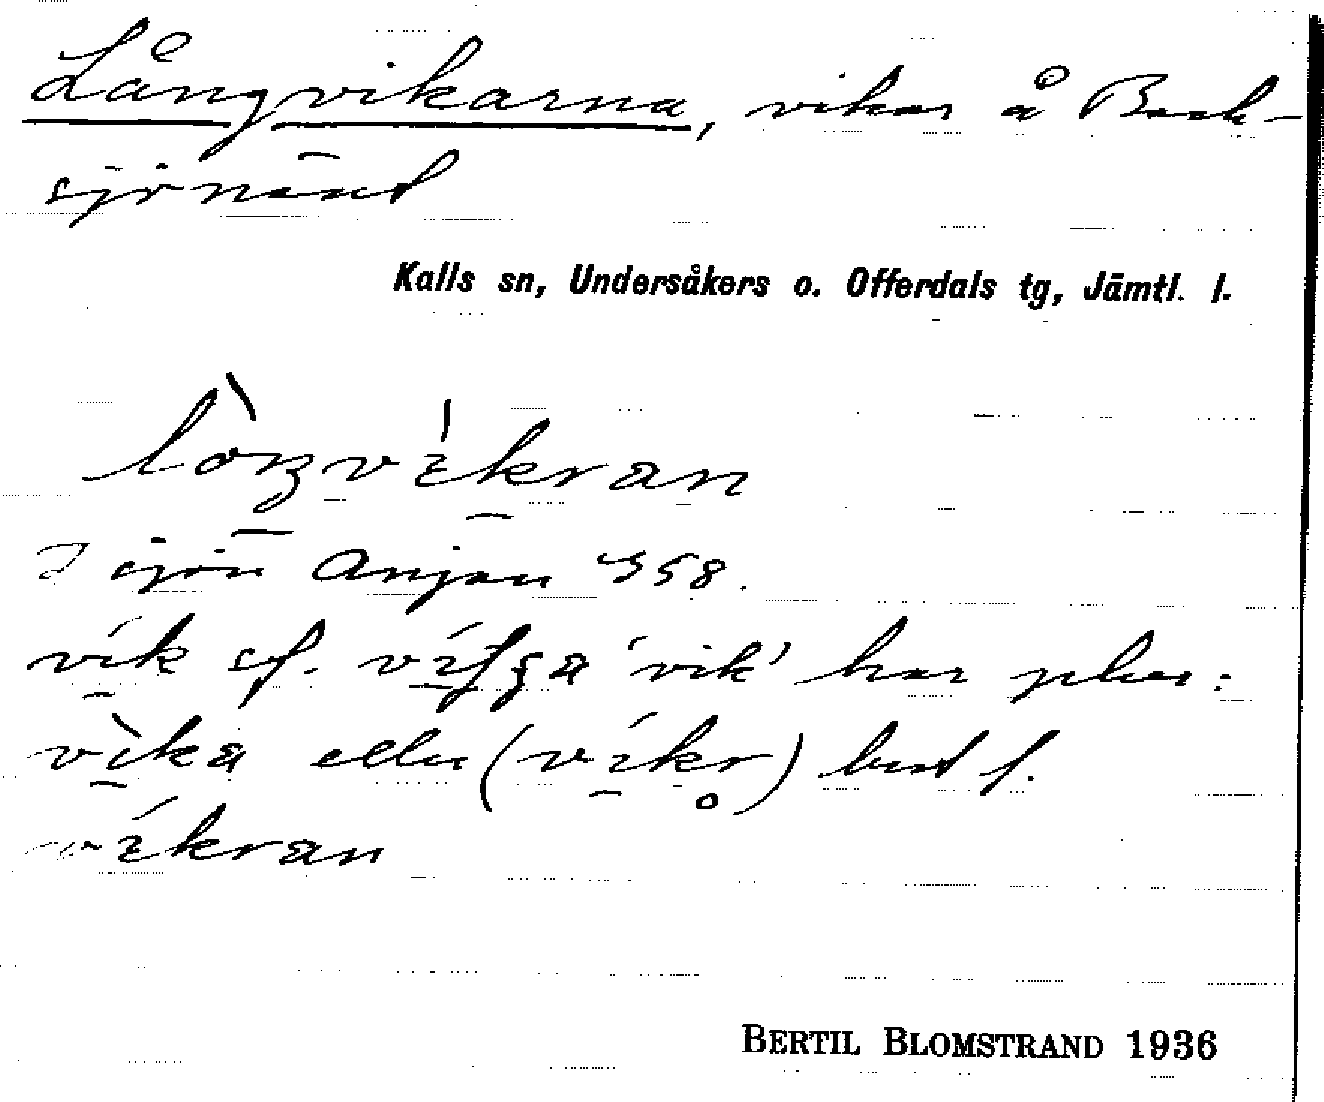 Långvikarna, vikar å Back-
sjönäset
Kalls sn, Undersåkers o. Offerdals tg, Jämtl. l.
lòŋvìkran
I sjön Anjan 458.
vík sf. 'vik' har plur:
vìka eller (víkr̥) best f.
víkran
BERTIL BLOMSTRAND 1936